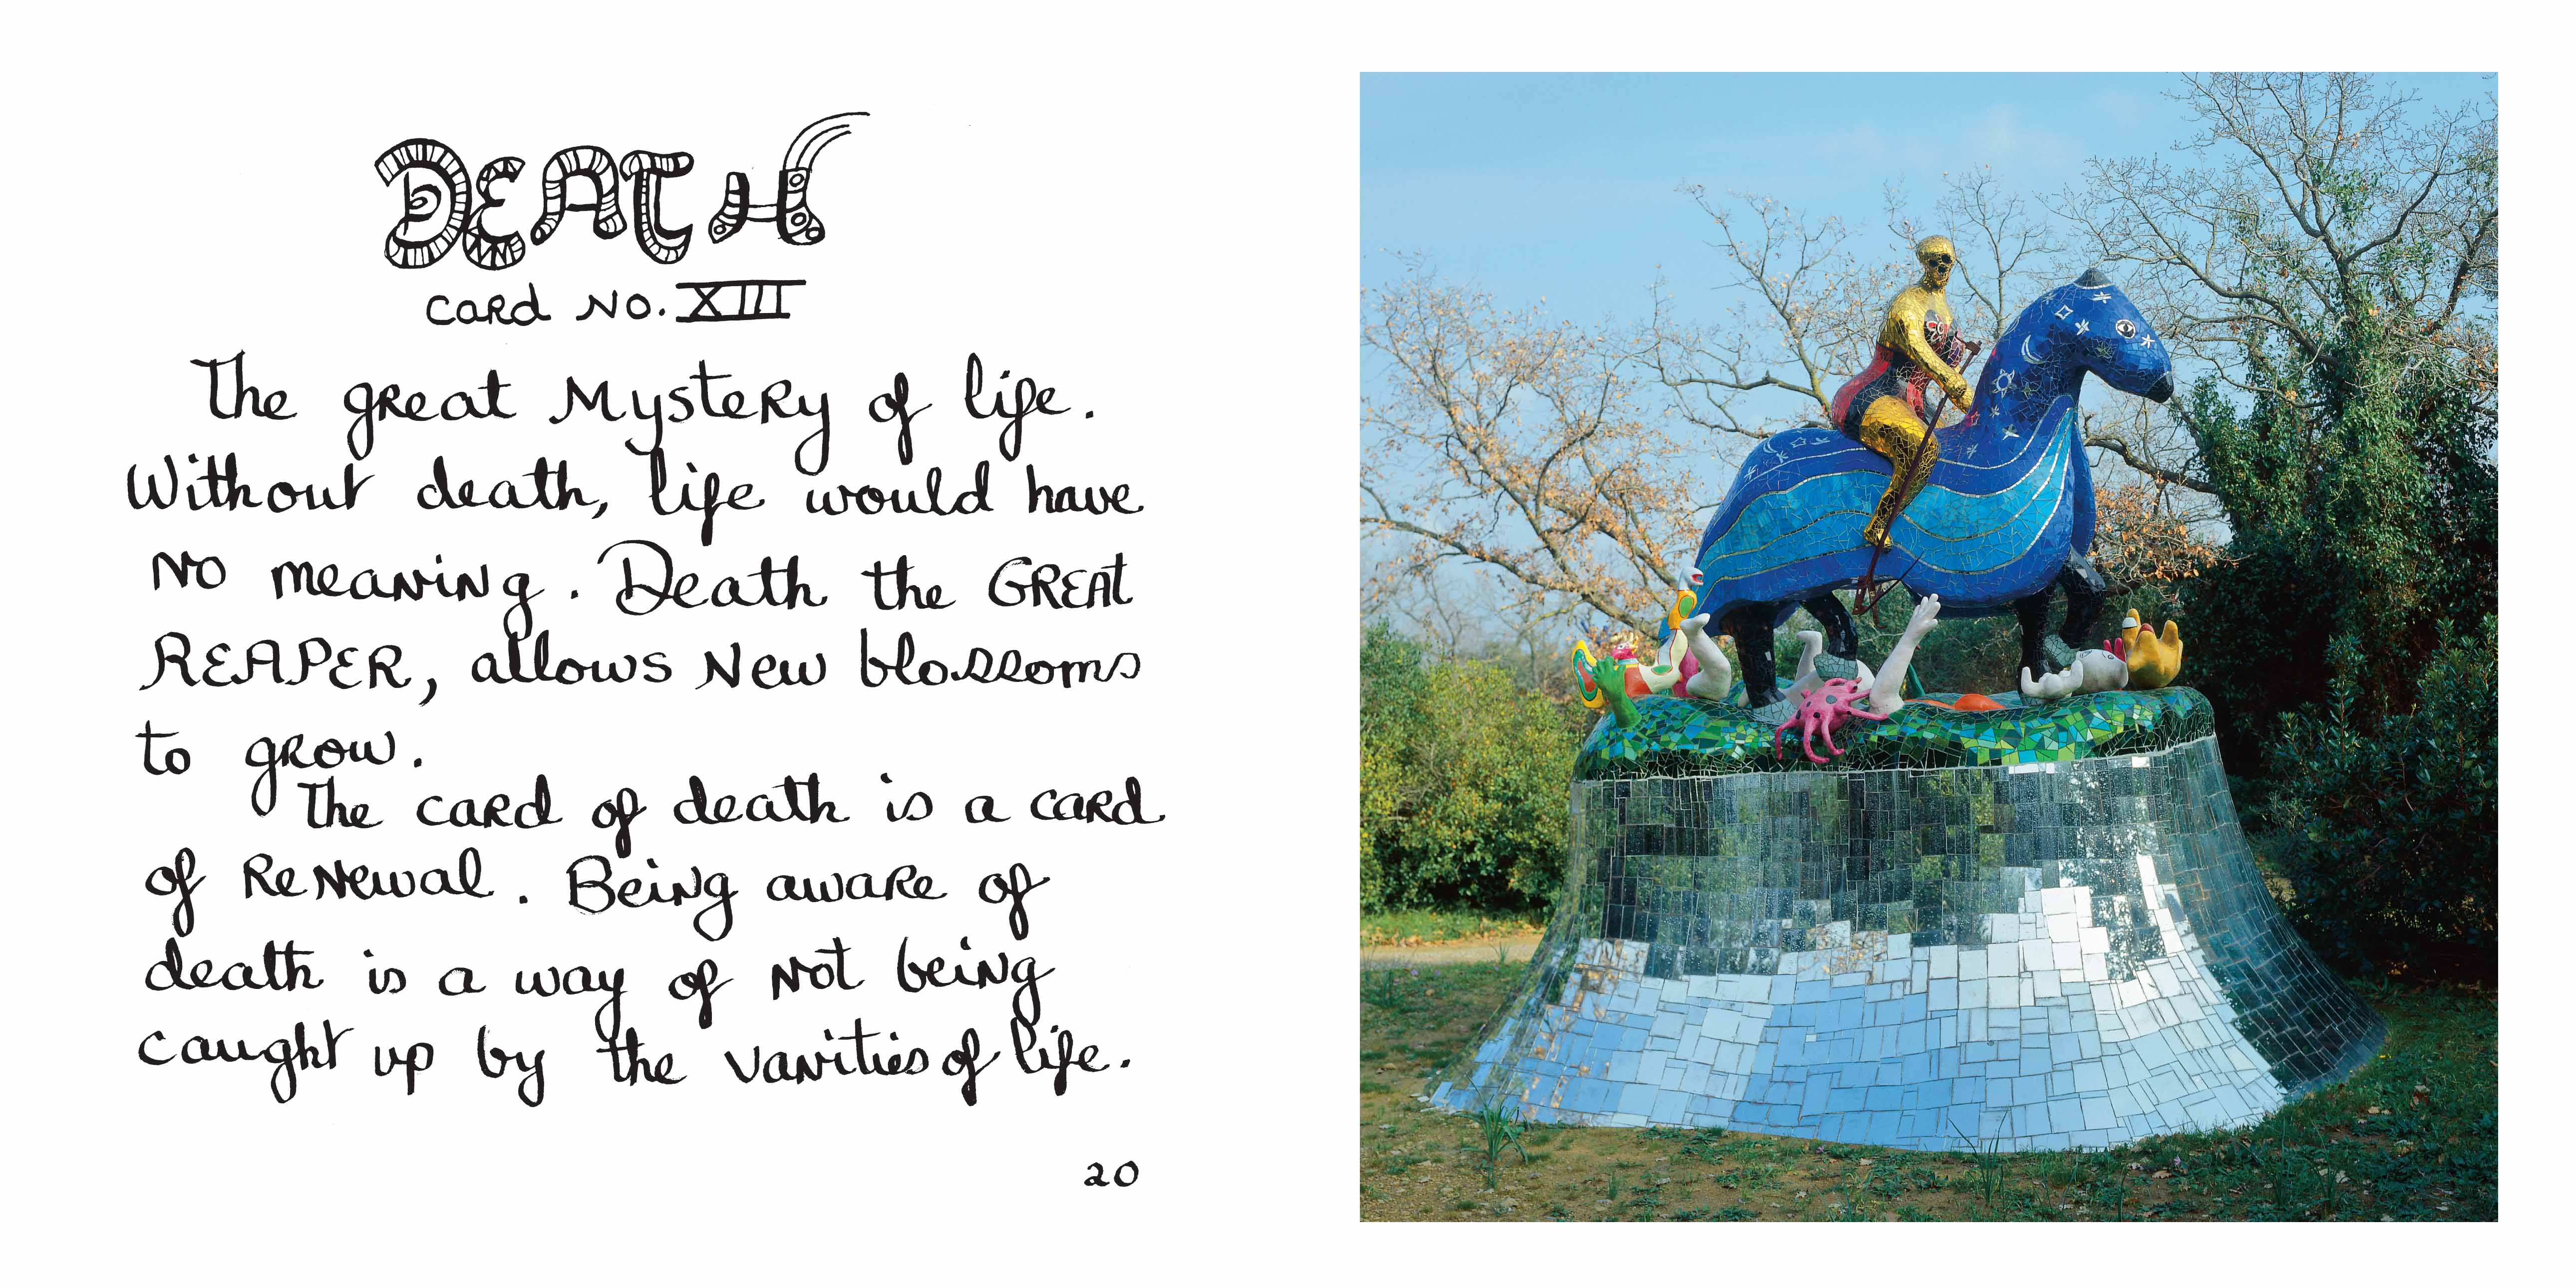 DEATH
CARD NO. XIII
The great Mystery of life.
Without death, life would have
NO meaning. Death the GREAt
REAPER, allows New blossoms
to grow.
The card of death is a card
of Renewal. Being aware of
death is a way of not being
caught up by the vanities of life.
20